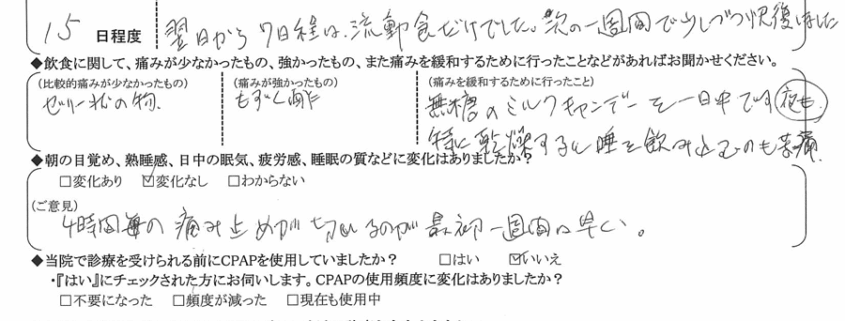 15 日程度 翌日から7日程は、流動食だけでした。次の一週間で少しづつ快復しました
◆飲食に関して、痛みが少なかったもの、強かったもの、また痛みを緩和するために行ったことなどがあればお聞かせください。
(比較的痛みが少なかったもの) (痛みが強かったもの) (痛みを緩和するために行ったこと)
ゼリー状の物、 もずく酢 無糖のミルクキャンデーを一日中です 夜も
特に乾燥すると唾を飲み込むのも苦痛、
◆朝の目覚め、熟睡感、日中の眠気、疲労感、睡眠の質などに変化はありましたか?
□変化あり ☑変化なし □わからない
(ご意見)
4時間毎の痛み止めが切れるのが最初一週間は早い。
◆当院で診療を受けられる前にCPAPを使用していましたか? □はい ☑いいえ
・『はい』にチェックされた方にお伺いします。CPAPの使用頻度に変化はありましたか?
□不要になった □頻度が減った □現在も使用中